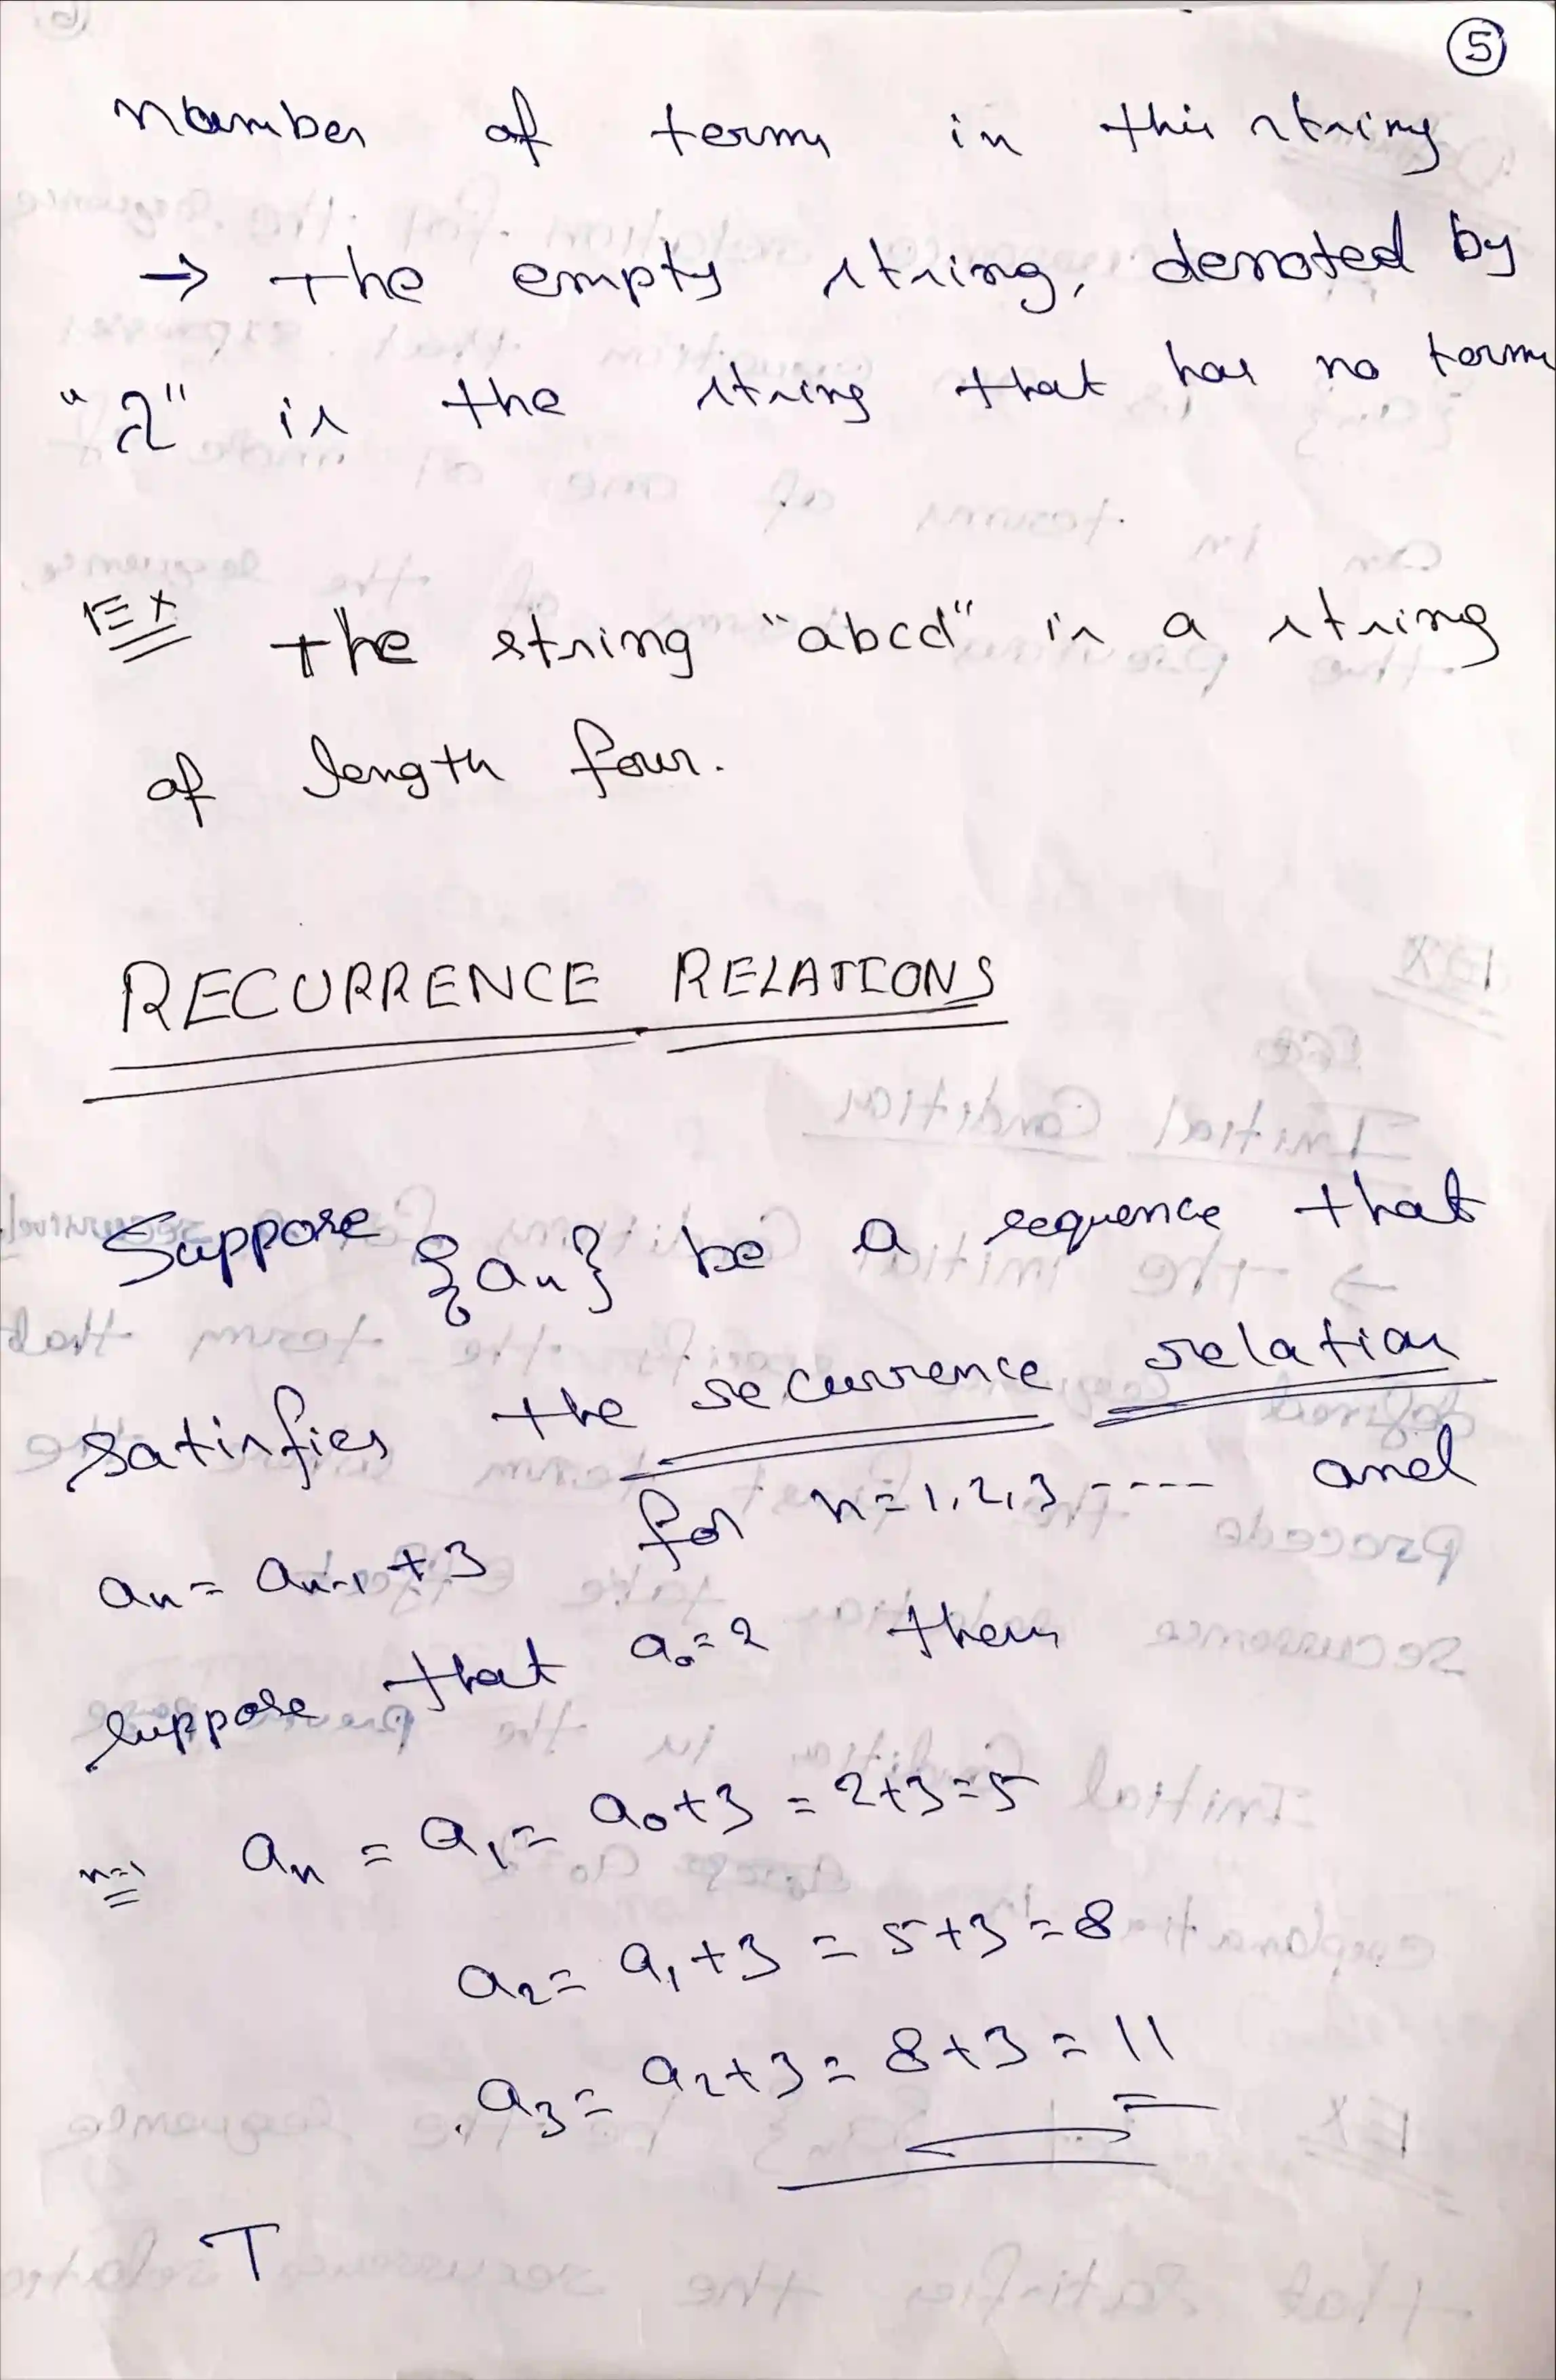 5
number of terms in this string
→ The empty string, denoted by
"λ" is the string that has no terms
Ex The string "abcd" is a string
of length four.
RECURRENCE RELATIONS
Suppose {an} be a sequence that
satisfies the recurrence relation
an = an-1 + 3 for n = 1, 2, 3 ---- and
suppose that a0 = 2 then
n=1 an = a1 = a0+3 = 2+3 = 5
a2 = a1+3 = 5+3 = 8
a3 = a2+3 = 8+3 = 11
T